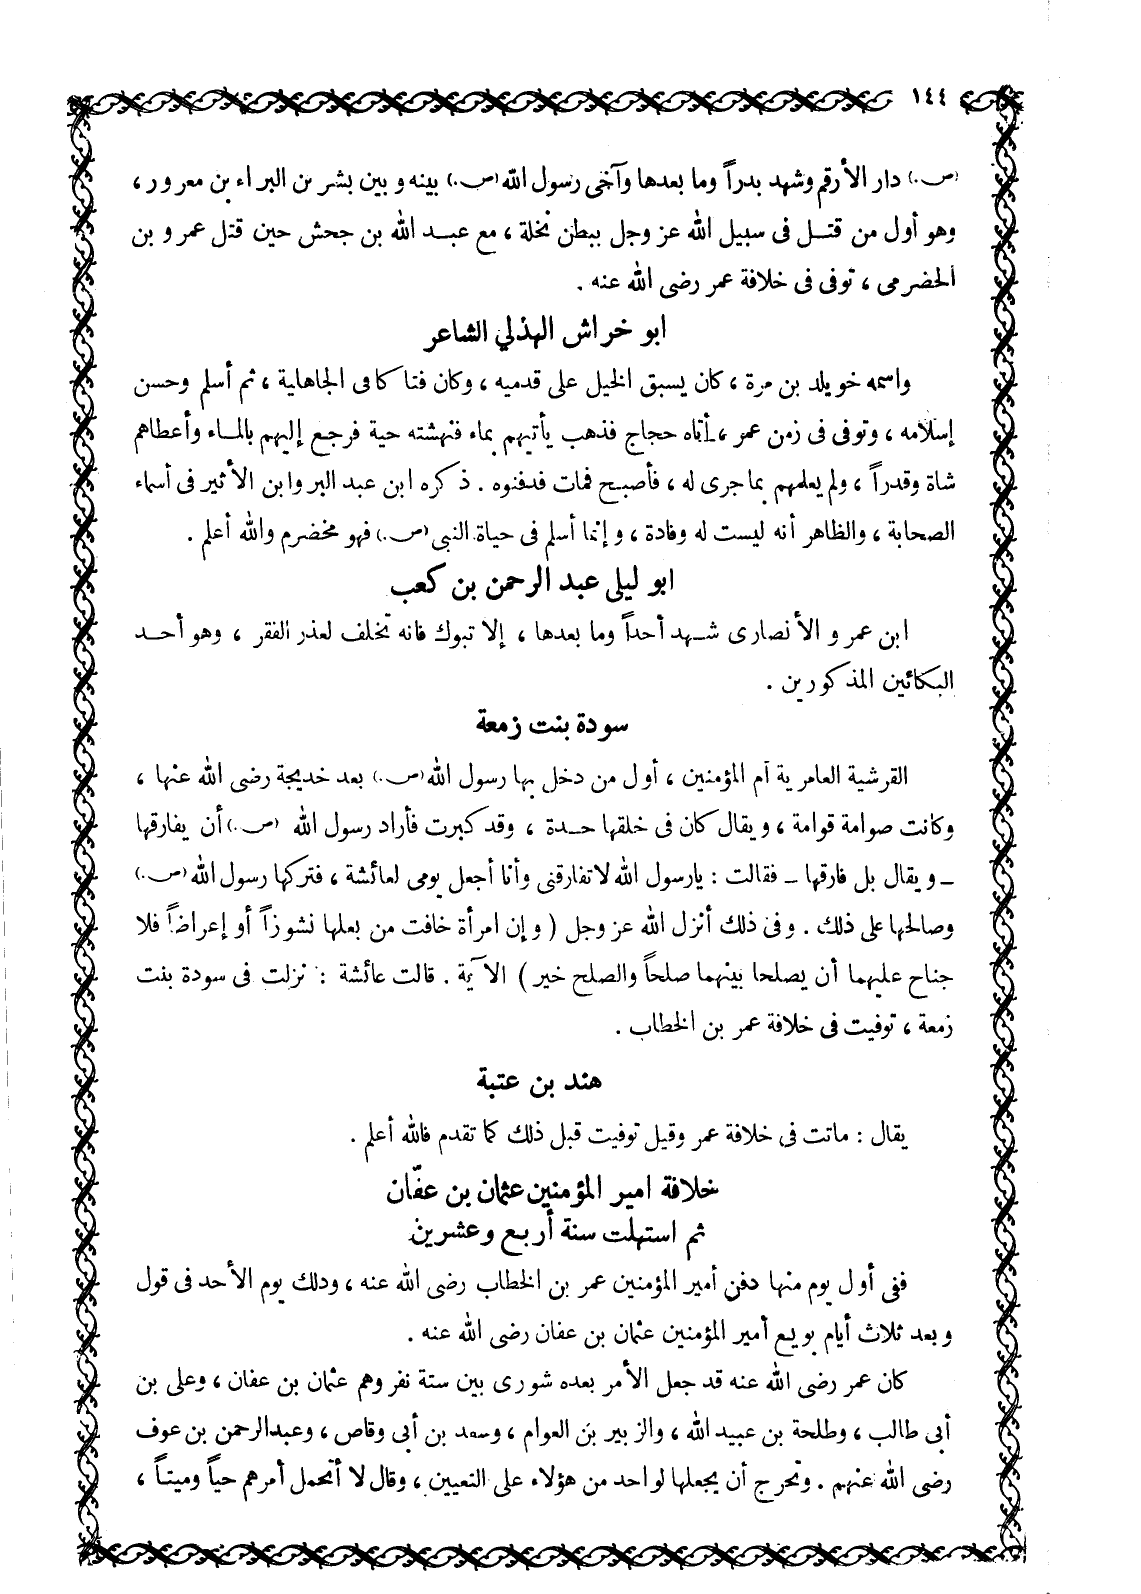 ١٤٤
(ص.) دار الأرقم وشهد بدراً وما بعدها وآخى رسول الله (ص.) بينه وبين بشر بن البراء بن معرور ،
وهو أول من قتل فى سبيل الله عز وجل ببطن نخلة ، مع عبد الله بن جحش حين قتل عمرو بن
الحضرمى ، توفى فى خلافة عمر رضى الله عنه .
ابو خراش الهذلي الشاعر
واسمه خويلد بن مرة ، كان يسبق الخيل على قدميه ، وكان فتاكا فى الجاهلية ، ثم أسلم وحسن
إسلامه ، وتوفى فى زمن عمر ، أتاه حجاج فذهب يأتيهم بماء فنهشته حية فرجع إليهم بالماء وأعطاهم
شاة وقدراً ، ولم يعلمهم بما جرى له ، فأصبح فمات فدفنوه . ذكره ابن عبد البر وابن الأثير فى أسماء
الصحابة ، والظاهر أنه ليست له وفادة ، وإنما أسلم فى حياة النبى (ص.) فهو مخضرم والله أعلم .
ابو ليلى عبد الرحمن بن كعب
ابن عمرو الأنصارى شهد أحداً وما بعدها ، إلا تبوك فانه تخلف لعذر الفقر ، وهو أحد
البكائين المذكورين .
سودة بنت زمعة
القرشية العامرية أم المؤمنين ، أول من دخل بها رسول الله (ص.) بعد خديجة رضى الله عنها ،
وكانت صوامة قوامة ، ويقال كان فى خلقها حدة ، وقد كبرت فأراد رسول الله (ص.) أن يفارقها
ـ ويقال بل فارقها ـ فقالت : يارسول الله لا تفارقنى وأنا أجعل يومى لعائشة ، فتركها رسول الله (ص.)
وصالحها على ذلك . وفى ذلك أنزل الله عز وجل ( وإن امرأة خافت من بعلها نشوزاً أو إعراضاً فلا
جناح عليهما أن يصلحا بينهما صلحاً والصلح خير ) الآية . قالت عائشة : نزلت فى سودة بنت
زمعة ، توفيت فى خلافة عمر بن الخطاب .
هند بن عتبة
يقال : ماتت فى خلافة عمر وقيل توفيت قبل ذلك كما تقدم فالله أعلم .
خلافة امير المؤمنين عثمان بن عفّان
ثم استهلت سنة أربع وعشرين
ففى أول يوم منها دفن أمير المؤمنين عمر بن الخطاب رضى الله عنه ، وذلك يوم الأحد فى قول
وبعد ثلاث أيام بويع أمير المؤمنين عثمان بن عفان رضى الله عنه .
كان عمر رضى الله عنه قد جعل الأمر بعده شورى بين ستة نفر وهم عثمان بن عفان ، وعلى بن
أبى طالب ، وطلحة بن عبيد الله ، والزبير بن العوام ، وسعد بن أبى وقاص ، وعبد الرحمن بن عوف
رضى الله عنهم . وتحرج أن يجعلها لواحد من هؤلاء على التعيين ، وقال لا أتحمل أمرهم حياً وميتاً ،